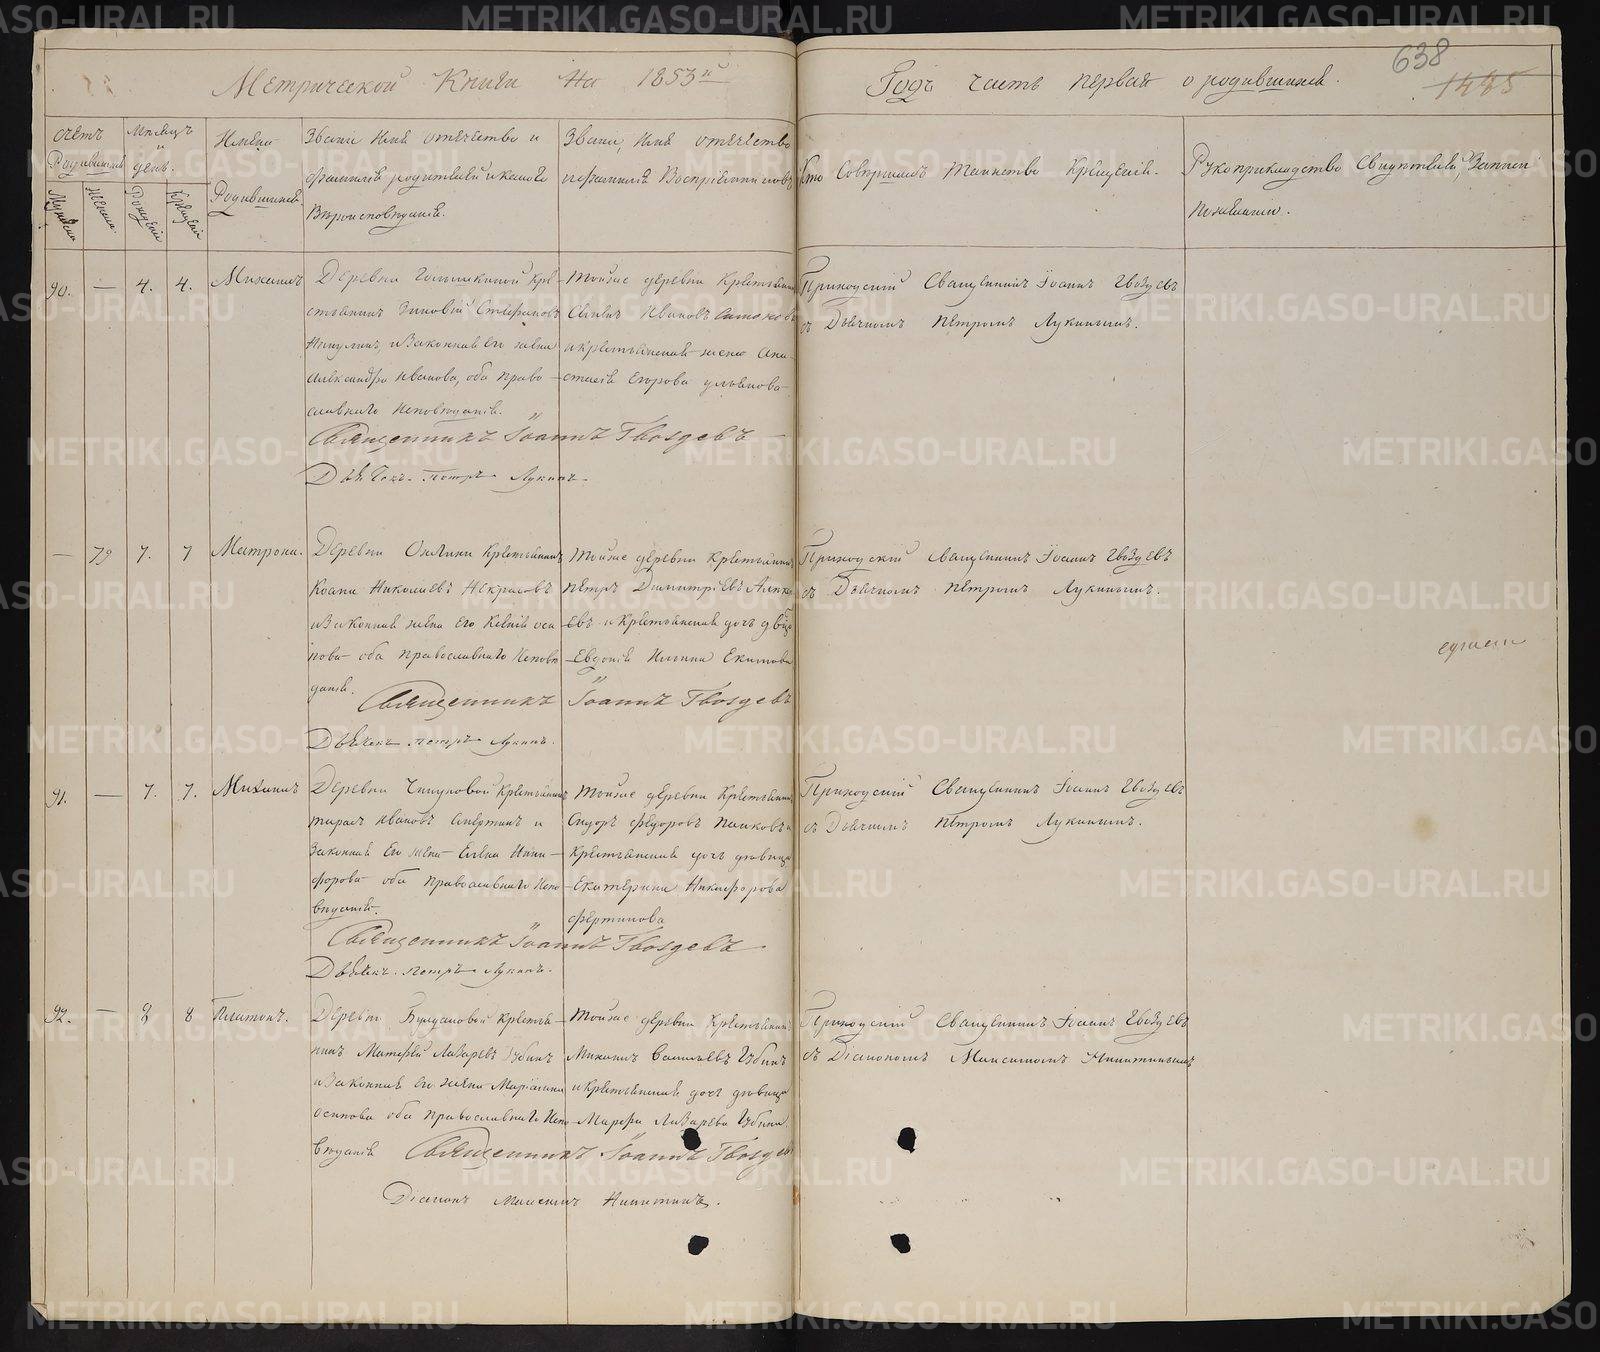 Метрической Книги на 1853й
Годъ часть первая о родившихся.
638
1445
счетъ Родившихся
Мужеска
Женска
Мѣсяцъ и день.
Рожденія
Крещенія
Имена Родившихся
Званіе Имя отчество и
фамилія родителей и какого
Вѣроисповѣданія.
Званіе, Имя отчество
и фамилія Воспріемниковъ
Кто Совершалъ Таинство Крещенія.
Рукоприкладство Свидѣтелей, Записи
по желанію.
90. — 4. 4. Михаилъ
Деревни Голышкиной Кре-
стьянинъ Зиновій Стефановъ
Никулинъ, и Законная Его жена
Александра Иванова, оба право-
славнаго Исповѣданія.
Тойже деревни Крестьянинъ
Ивановъ
и крестьянская жена Ана-
стасія Егорова
Приходскій Священникъ Іоаннъ Гвоздевъ
съ Дьячкомъ Петромъ Лукинымъ.
Священникъ Іоаннъ Гвоздевъ
Дьячекъ Петръ Лукинъ.
— 79 7. 7 Матрона.
Деревни Крестьянинъ
Николаевъ Некрасовъ
и Законная жена Его Ксенія Оси-
пова оба православнаго Исповѣ-
данія.
Тойже деревни Крестьянинъ
Петръ Димитріевъ
и Крестьянская дочь дѣвица
Евдокія Екимова
Приходскій Священникъ Іоаннъ Гвоздевъ
съ Дьячкомъ Петромъ Лукинымъ.
Священникъ Іоаннъ Гвоздевъ
Дьячекъ Петръ Лукинъ.
91. — 7. 7. Михаилъ
Деревни Чипуковой Крестьянинъ
Тарасъ Ивановъ и
Законная Его жена Елена Ники-
форова оба православнаго Испо-
вѣданія.
Тойже деревни Крестьянинъ
Сидоръ Федоровъ
Крестьянская дочь дѣвица
Екатерина Никифорова
Фертикова
Приходскій Священникъ Іоаннъ Гвоздевъ
съ Дьячкомъ Петромъ Лукинымъ.
Священникъ Іоаннъ Гвоздевъ
Дьячекъ Петръ Лукинъ.
92. — 8 8 Платонъ.
Деревни Булдаковой Крестья-
нинъ Матѳей Лазаревъ Губинъ
и Законная Его жена Маріамна
Осипова оба православнаго Испо-
вѣданія
Тойже деревни Крестьянинъ
Михаилъ Васильевъ Губинъ
и Крестьянская дочь дѣвица
Марфа Лазарева Губина.
Приходскій Священникъ Іоаннъ Гвоздевъ
съ Діакономъ Максимомъ Никитинымъ
Священникъ Іоаннъ Гвоздевъ
Діаконъ Максимъ Никитинъ.
METRIKI.GASO-URAL.RU